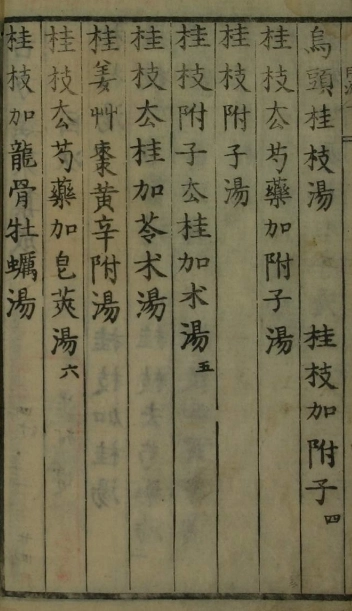 烏頭桂枝湯 桂枝加附子四
桂枝厺芍藥加附子湯
桂枝附子湯
桂枝附子厺桂加术湯五
桂枝厺桂加苓术湯
桂姜艸棗黃辛附湯
桂枝厺芍藥加皂莢湯六
桂枝加龍骨牡蠣湯